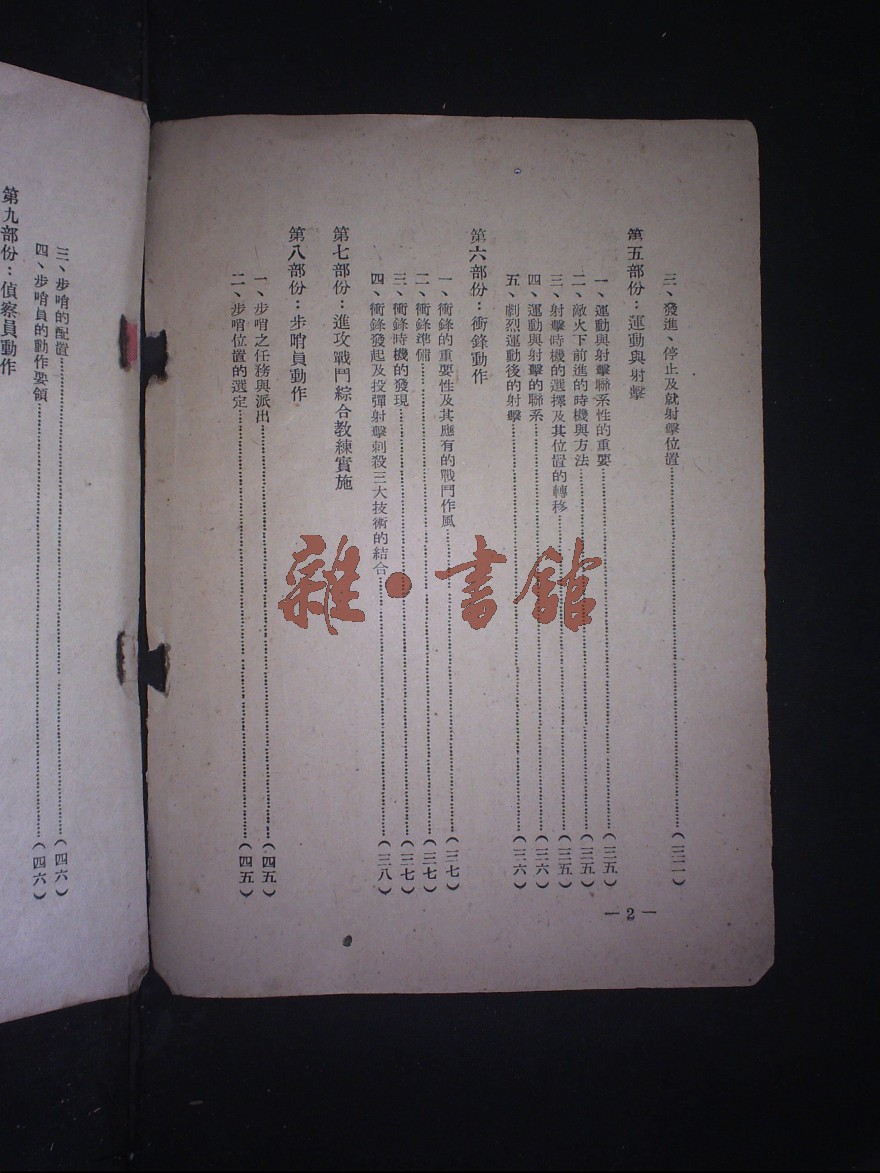 三、發進、停止及就射擊位置……(三二)
第五部份：運動與射擊
一、運動與射擊聯系性的重要……(三五)
二、敵火下前進的時機與方法……(三五)
三、射擊時機的選擇及其位置的轉移……(三五)
四、運動與射擊的聯系……(三六)
五、劇烈運動後的射擊……(三六)
第六部份：衝鋒動作
一、衝鋒的重要性及其應有的戰鬥作風……(三七)
二、衝鋒準備……(三七)
三、衝鋒時機的發現……(三七)
四、衝鋒發起及投彈射擊刺殺三大技術的結合……(三八)
第七部份：進攻戰鬥綜合教練實施
第八部份：步哨員動作
一、步哨之任務與派出……(四五)
二、步哨位置的選定……(四五)
—2—
三、步哨的配置……(四六)
四、步哨員的動作要領……(四六)
第九部份：偵察員動作
雜·書館